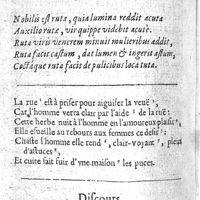 Nobilis est ruta, quia lumina reddit acuta
Auxilio rutæ, vir quippe videbit acutè.
Ruta viris Venerem minuit mulieribus addit,
Ruta facit castum, dat lumen & ingerit astum,
Coctáque ruta facit de pulicibus loca tuta.
La rue est à priser pour aiguiser la veuë,
Car l'homme verra clair par l'aide de la ruë:
Cette herbe nuit à l'homme en l'amoureux plaisir,
Elle esueille au rebours aux femmes ce desir:
Chaste l'homme elle rend, clair-voyant, plein
d'astuces,
Et cuite fait fuir d'vne maison les puces.
Discours